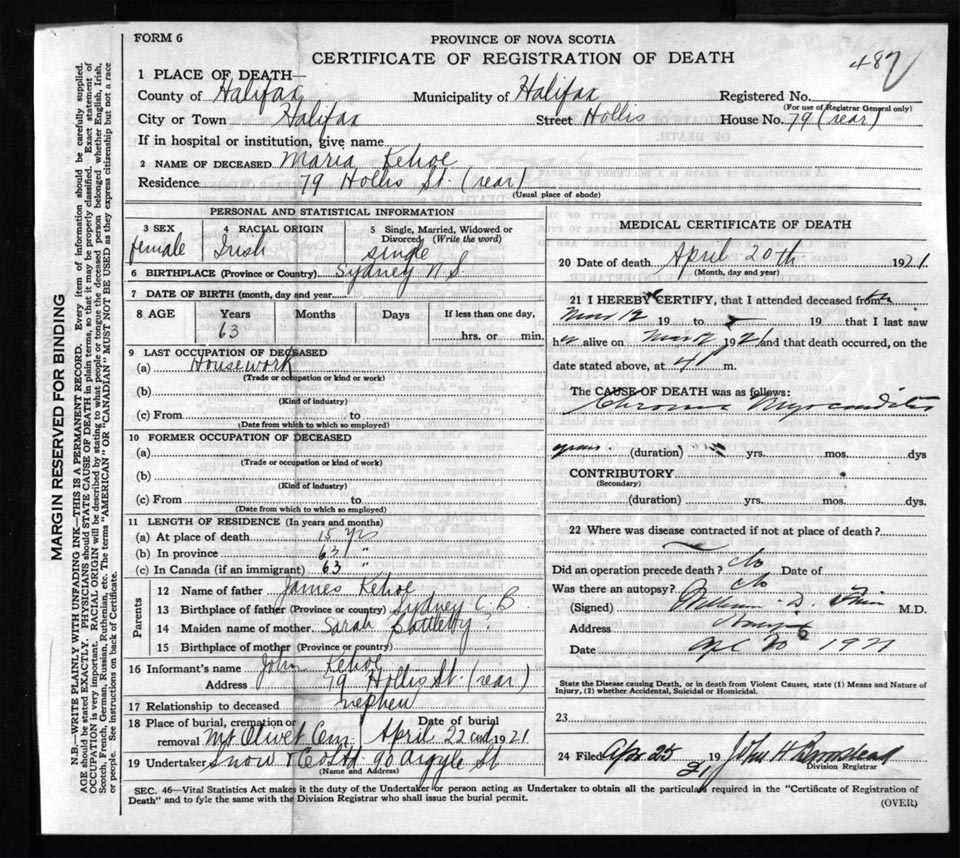 FORM 6
PROVINCE OF NOVA SCOTIA
CERTIFICATE OF REGISTRATION OF DEATH
487
1 PLACE OF DEATH—
County of Halifax Municipality of Halifax Registered No.
(For use of Registrar General only)
City or Town Halifax Street Hollis House No. 79 (rear)
If in hospital or institution, give name
2 NAME OF DECEASED Maria Kehoe
Residence 79 Hollis St. (rear)
(Usual place of abode)
PERSONAL AND STATISTICAL INFORMATION
3 SEX 4 RACIAL ORIGIN 5 Single, Married, Widowed or Divorced (Write the word)
female Irish single
6 BIRTHPLACE (Province or Country) Sydney N.S.
7 DATE OF BIRTH (month, day and year)
8 AGE Years Months Days If less than one day,
63 hrs. or min.
9 LAST OCCUPATION OF DECEASED
(a) Housework
(Trade or occupation or kind or work)
(b)
(Kind of industry)
(c) From to
(Date from which to which so employed)
10 FORMER OCCUPATION OF DECEASED
(a)
(Trade or occupation or kind of work)
(b)
(Kind of industry)
(c) From to
(Date from which to which so employed)
11 LENGTH OF RESIDENCE (In years and months)
(a) At place of death 15 yrs
(b) In province 63 "
(c) In Canada (if an immigrant) 63 "
Parents
12 Name of father James Kehoe
13 Birthplace of father (Province or country) Sydney C.B
14 Maiden name of mother Sarah
15 Birthplace of mother (Province or country)
16 Informant's name John Kehoe
Address 79 Hollis St. (rear)
17 Relationship to deceased Nephew
18 Place of burial, cremation or removal Mt Olivet Cem Date of burial April 22nd 1921
19 Undertaker Snow & Co Ltd. 90 Argyle St
(Name and Address)
MEDICAL CERTIFICATE OF DEATH
20 Date of death April 20th 1921
(Month, day and year)
21 I HEREBY CERTIFY, that I attended deceased from
19 to 19 that I last saw
her alive on 1921 and that death occurred, on the
date stated above, at 4 m.
The CAUSE OF DEATH was as follows:
Chronic Myocarditis
years (duration) yrs. mos. dys
CONTRIBUTORY
(Secondary)
(duration) yrs. mos. dys.
22 Where was disease contracted if not at place of death?
Did an operation precede death? No Date of
Was there an autopsy? No
(Signed) William D M.D.
Address
Date Apl 20 1921
State the Disease causing Death, or in death from Violent Causes, state (1) Means and Nature of Injury, (2) whether Accidental, Suicidal or Homicidal.
23
24 Filed Apr 25 1921 John H
Division Registrar
SEC. 46—Vital Statistics Act makes it the duty of the Undertaker or person acting as Undertaker to obtain all the particulars required in the "Certificate of Registration of
Death" and to fyle the same with the Division Registrar who shall issue the burial permit.
(OVER)
MARGIN RESERVED FOR BINDING
N.B.—WRITE PLAINLY WITH UNFADING INK—THIS IS A PERMANENT RECORD. Every item of information should be carefully supplied.
AGE should be stated EXACTLY. PHYSICIANS should STATE CAUSE OF DEATH in plain terms, so that it may be properly classified. Exact statement of
OCCUPATION is very important. RACIAL ORIGIN will be described by stating to what people or tongue the deceased person belonged whether English, Irish,
Scotch, French, German, Russian, Ruthenian, etc. The terms "AMERICAN" OR "CANADIAN" MUST NOT BE USED as they express citizenship but not a race
or people. See instructions on back of Certificate.